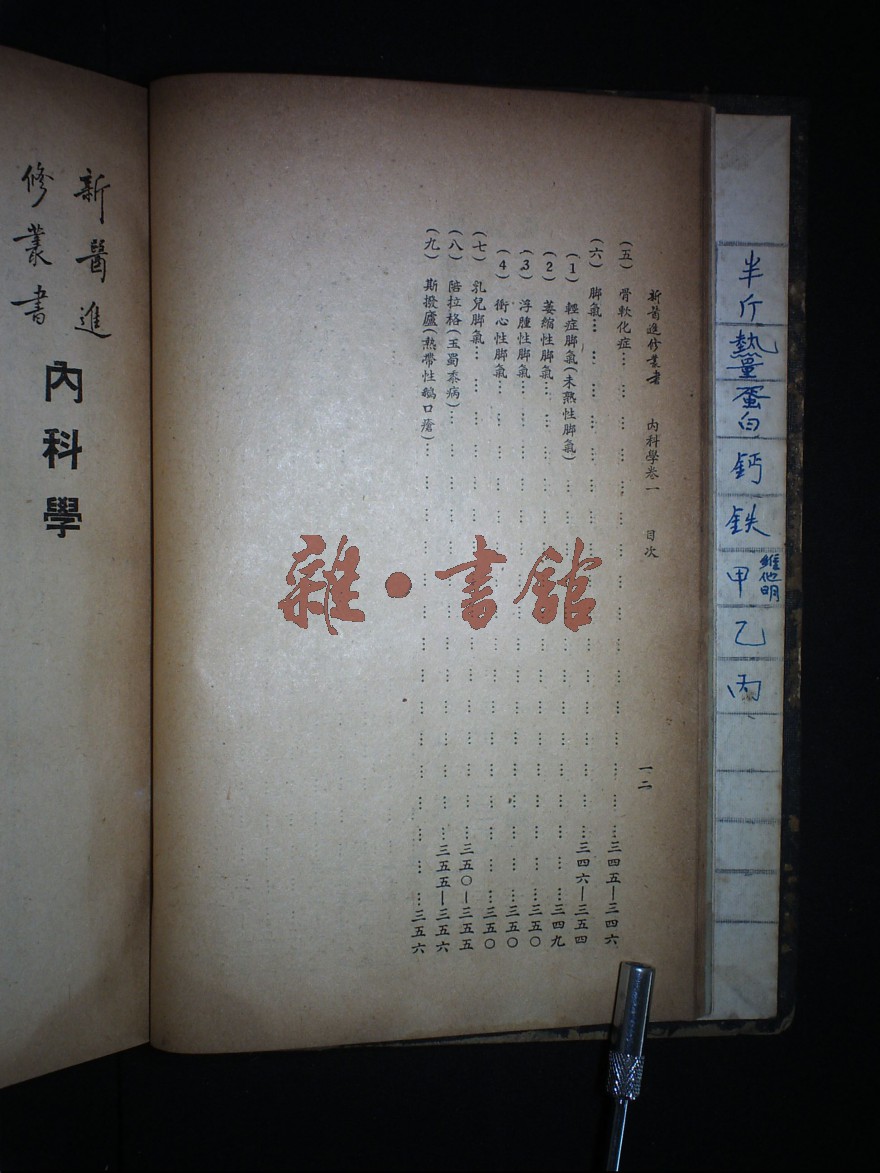 新醫進修叢書 內科學卷一 目次 一二
(五) 骨軟化症…………三四五—三四六
(六) 脚氣…………三四六—三五四
(1) 輕症脚氣(未熟性脚氣)…………三四九
(2) 萎縮性脚氣…………三五〇
(3) 浮腫性脚氣…………三五〇
(4) 衝心性脚氣…………三五〇
(七) 乳兒脚氣…………三五〇—三五五
(八) 陪拉格(玉蜀黍病)…………三五五—三五六
(九) 斯撥廬(熱帶性鵝口瘡)…………三五六
新醫進
修叢書
內科學
半斤
熱量
蛋白
鈣
鉄
維他明
甲
乙
丙
雜·書館